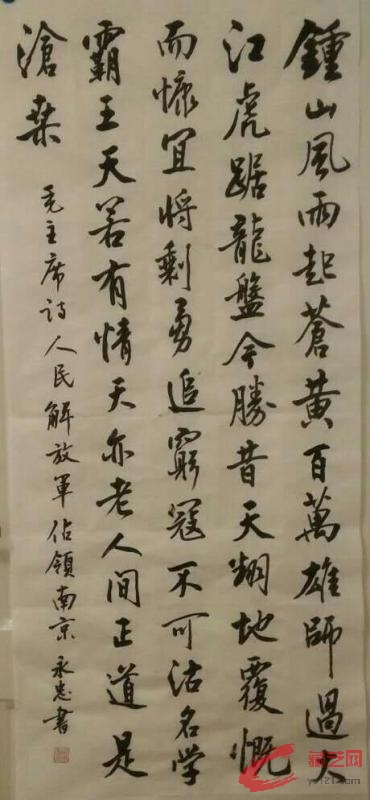 鍾山風雨起蒼黄百萬雄師過大
江虎踞龍盤今勝昔天翻地覆慨
而慷宜将剩勇追窮寇不可沽名学
霸王天若有情天亦老人间正道是
滄桑
毛主席詩人民解放軍佔領南京永忠書